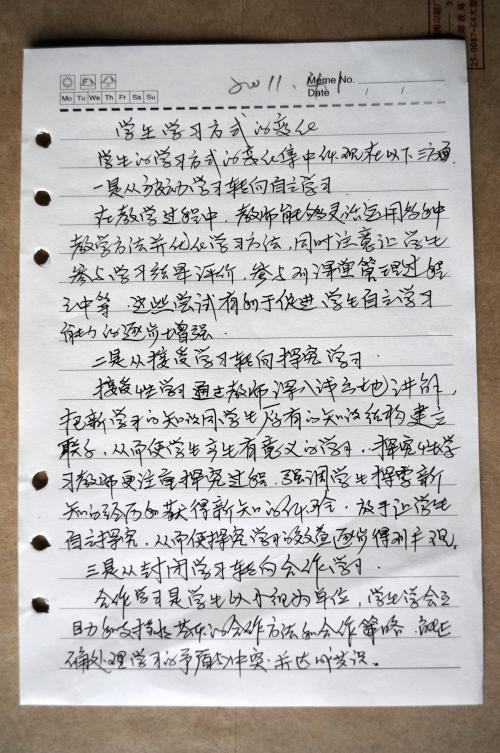 Mo Tu We Th Fr Sa Su
Memo No.
Date / /
学生学习方式的变化
学生的学习方式的变化集中体现在以下三方面
一是从被动学习转向自主学习.
在教学过程中,教师能够灵活运用各种
教学方法并优化学习方法,同时注意让学生
参与学习结果评价,参与对课堂管理过程
之中等.这些尝试有利于促进学生自主学习
能力的逐步增强.
二是从接受学习转向探究学习.
接受性学习通过教师深入浅出地讲解,
把新学习的知识同学生原有的知识结构建立
联系,从而使学生产生有意义的学习.探究性学
习教师更注重探究过程.强调学生探索新
知的经历和获得新知的体验.放手让学生
自主探究,从而使探究学习的效益逐步得到显现.
三是从封闭学习转向合作学习.
合作学习是学生以小组为单位,学生学会互
助和支持性的合作方法和合作策略.能正
确处理学习的矛盾与冲突.并达成共识。